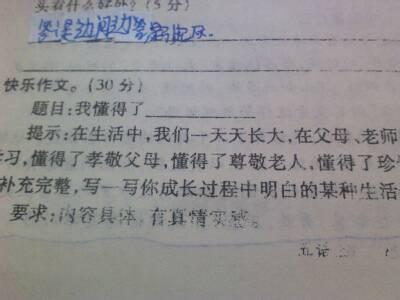 实有什么好处?(5分)
答:是边问边
快乐作文。(30分)
题目:我懂得了
提示:在生活中,我们一天天长大,在父母、老师
习,懂得了孝敬父母,懂得了尊敬老人,懂得了珍
补充完整,写一写你成长过程中明白的某种生活
要求:内容具体,有真情实感。
五语